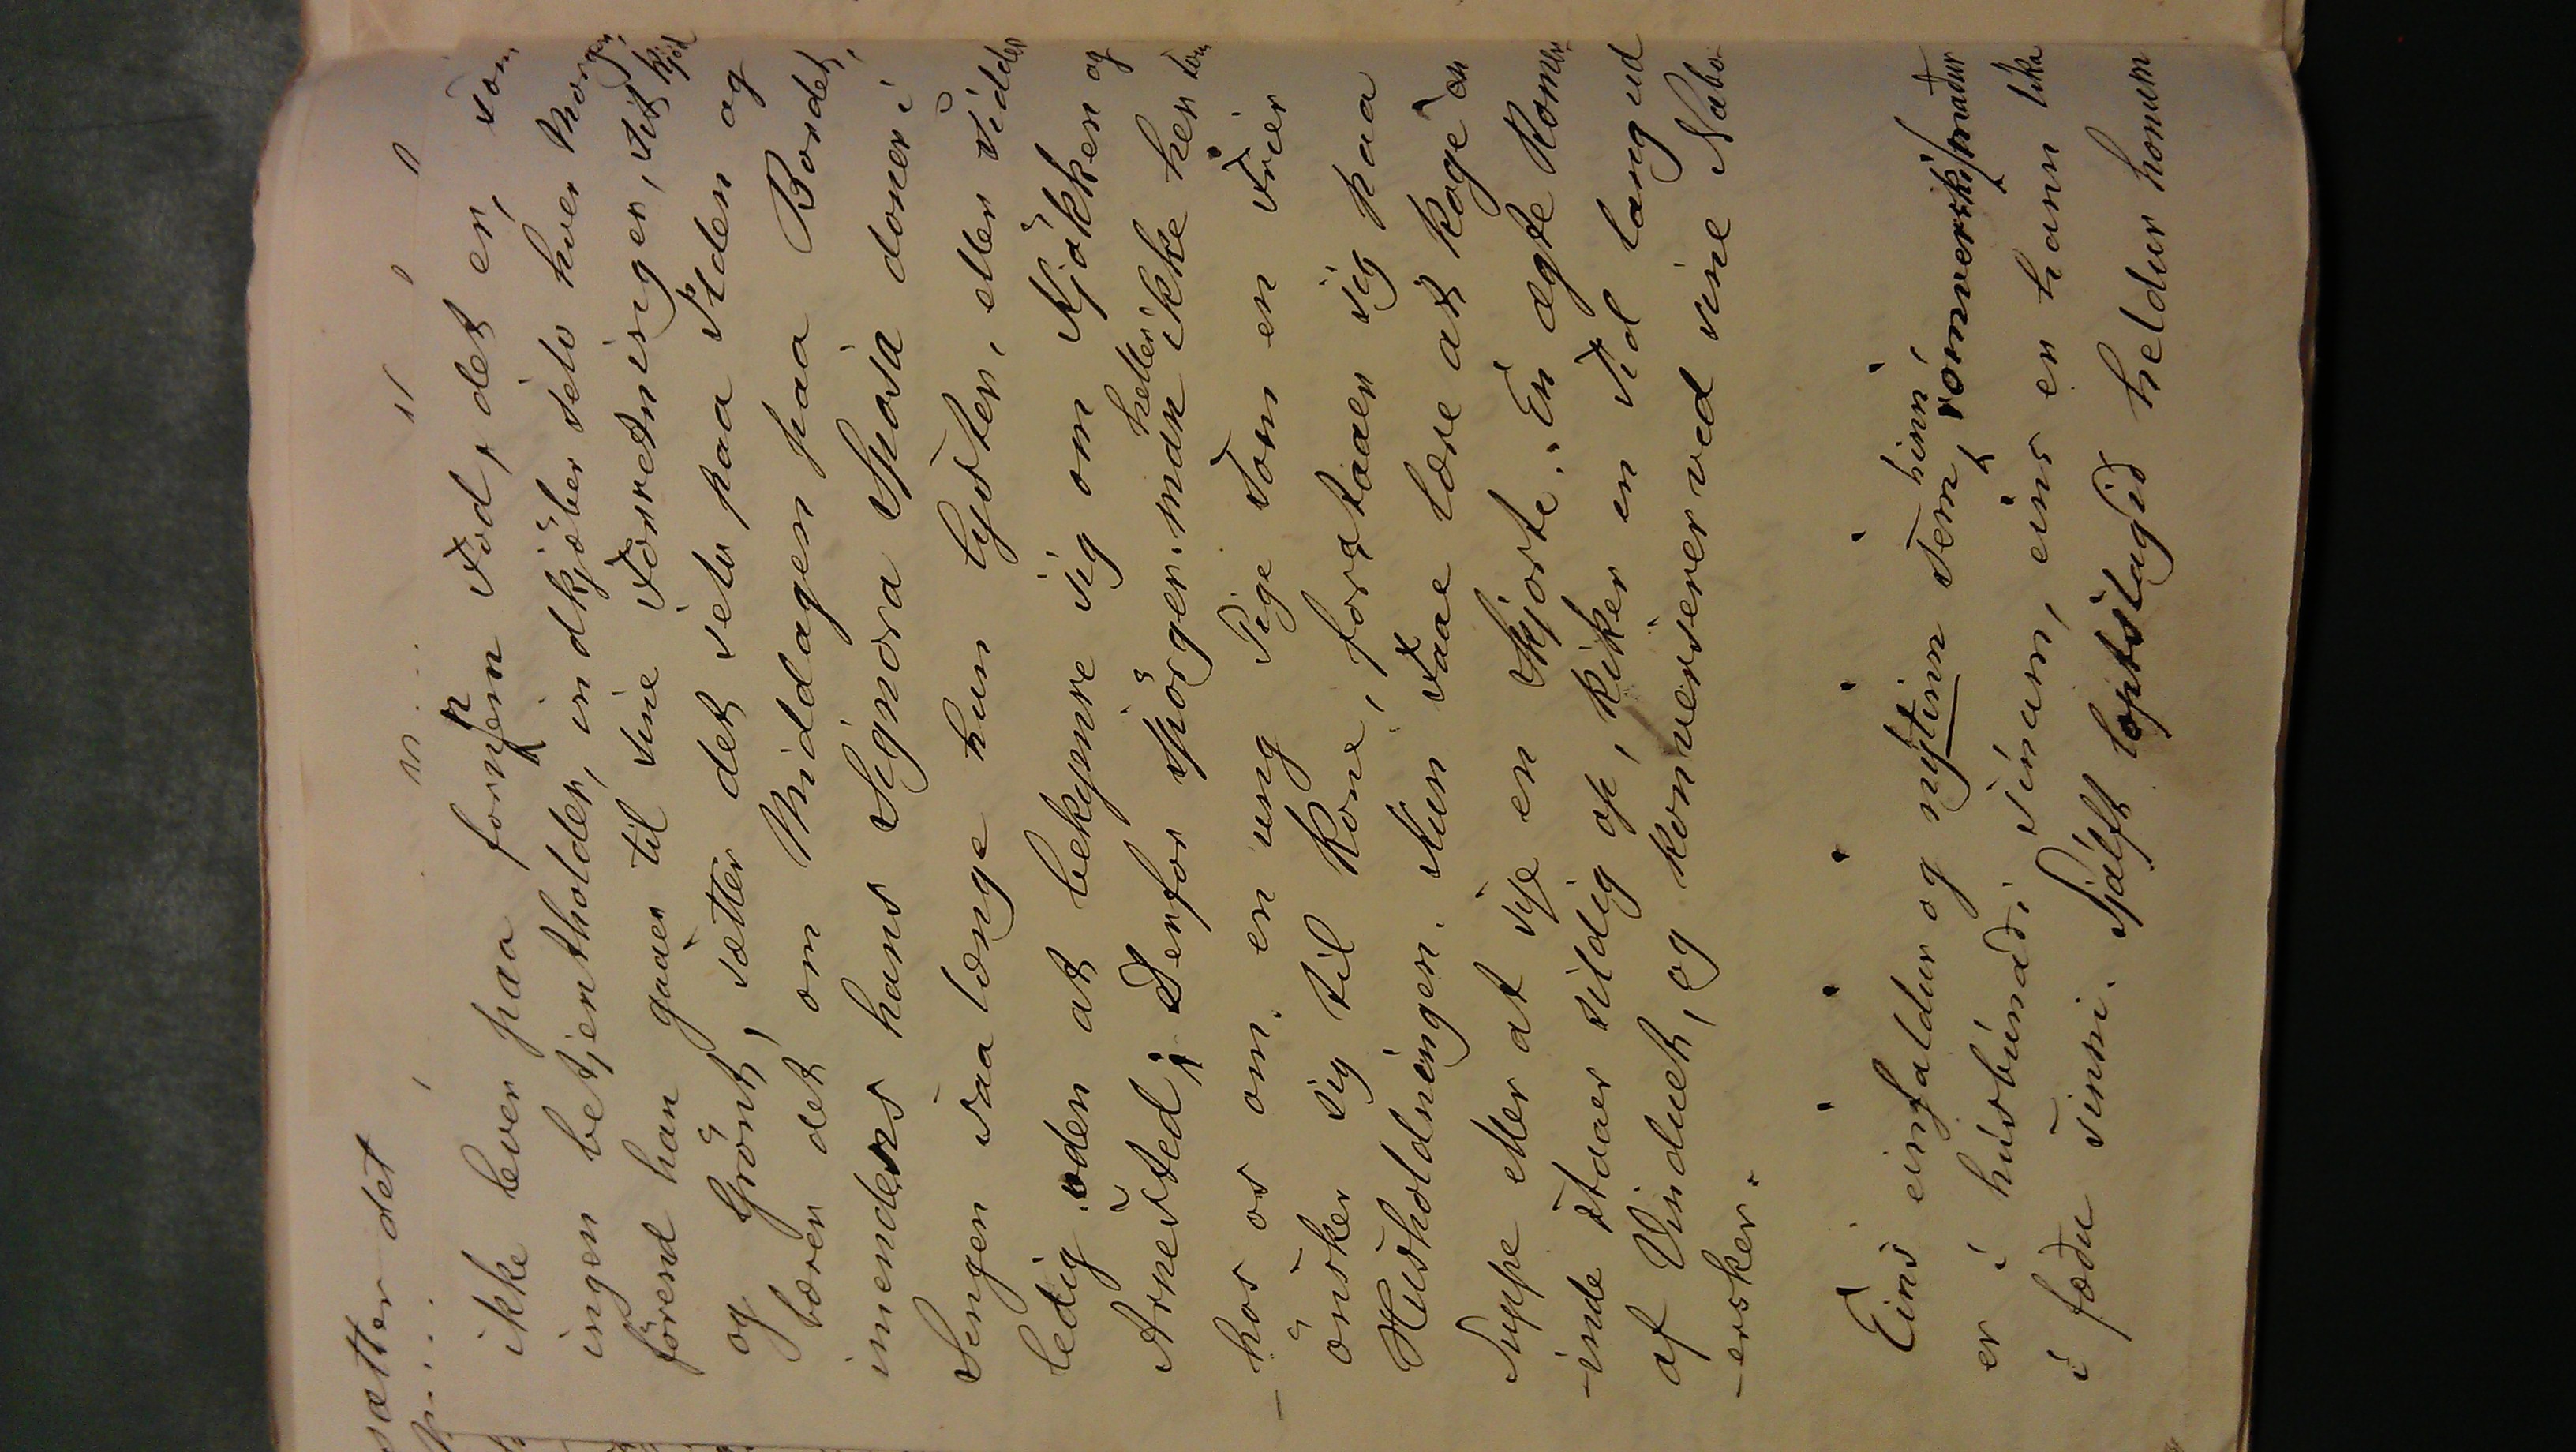 sætter det
ikke lever paa fornem Fod, det er, som
ingen betjent holder, indkjøber selv hver Morgen,
förend han gaaer til sine Forretninger, sit Kjöd
og Grönt, sætter det selv paa Ilden og
bærer det om Middagen paa Bordet,
imendens hans Signora Sposa dorer i
Sengen saa længe hun lyster, eller sidder
ledig uden at bekymre sig om Kjökken og
Arnested; Derfor spörger man heller ikke her som
- hos os om en ung Pige som en Frier
önsker sig til Kone, forstaaer sig paa
Husholdningen. Kun Faae lære at koge en
Suppe eller at sye en Skjorte. En ægte Romer
-inde staaer sildig op, kiker en Tid lang ud
af Vinduet, og konverserer ved sine Nabo
-ersker.
Eins einfaldur og nýtinn sem hinn rómverski maður
er í húsbúnaði sínum, eins er hann líka
í fæðu sinni. Sjálft loptslagið heldur honum